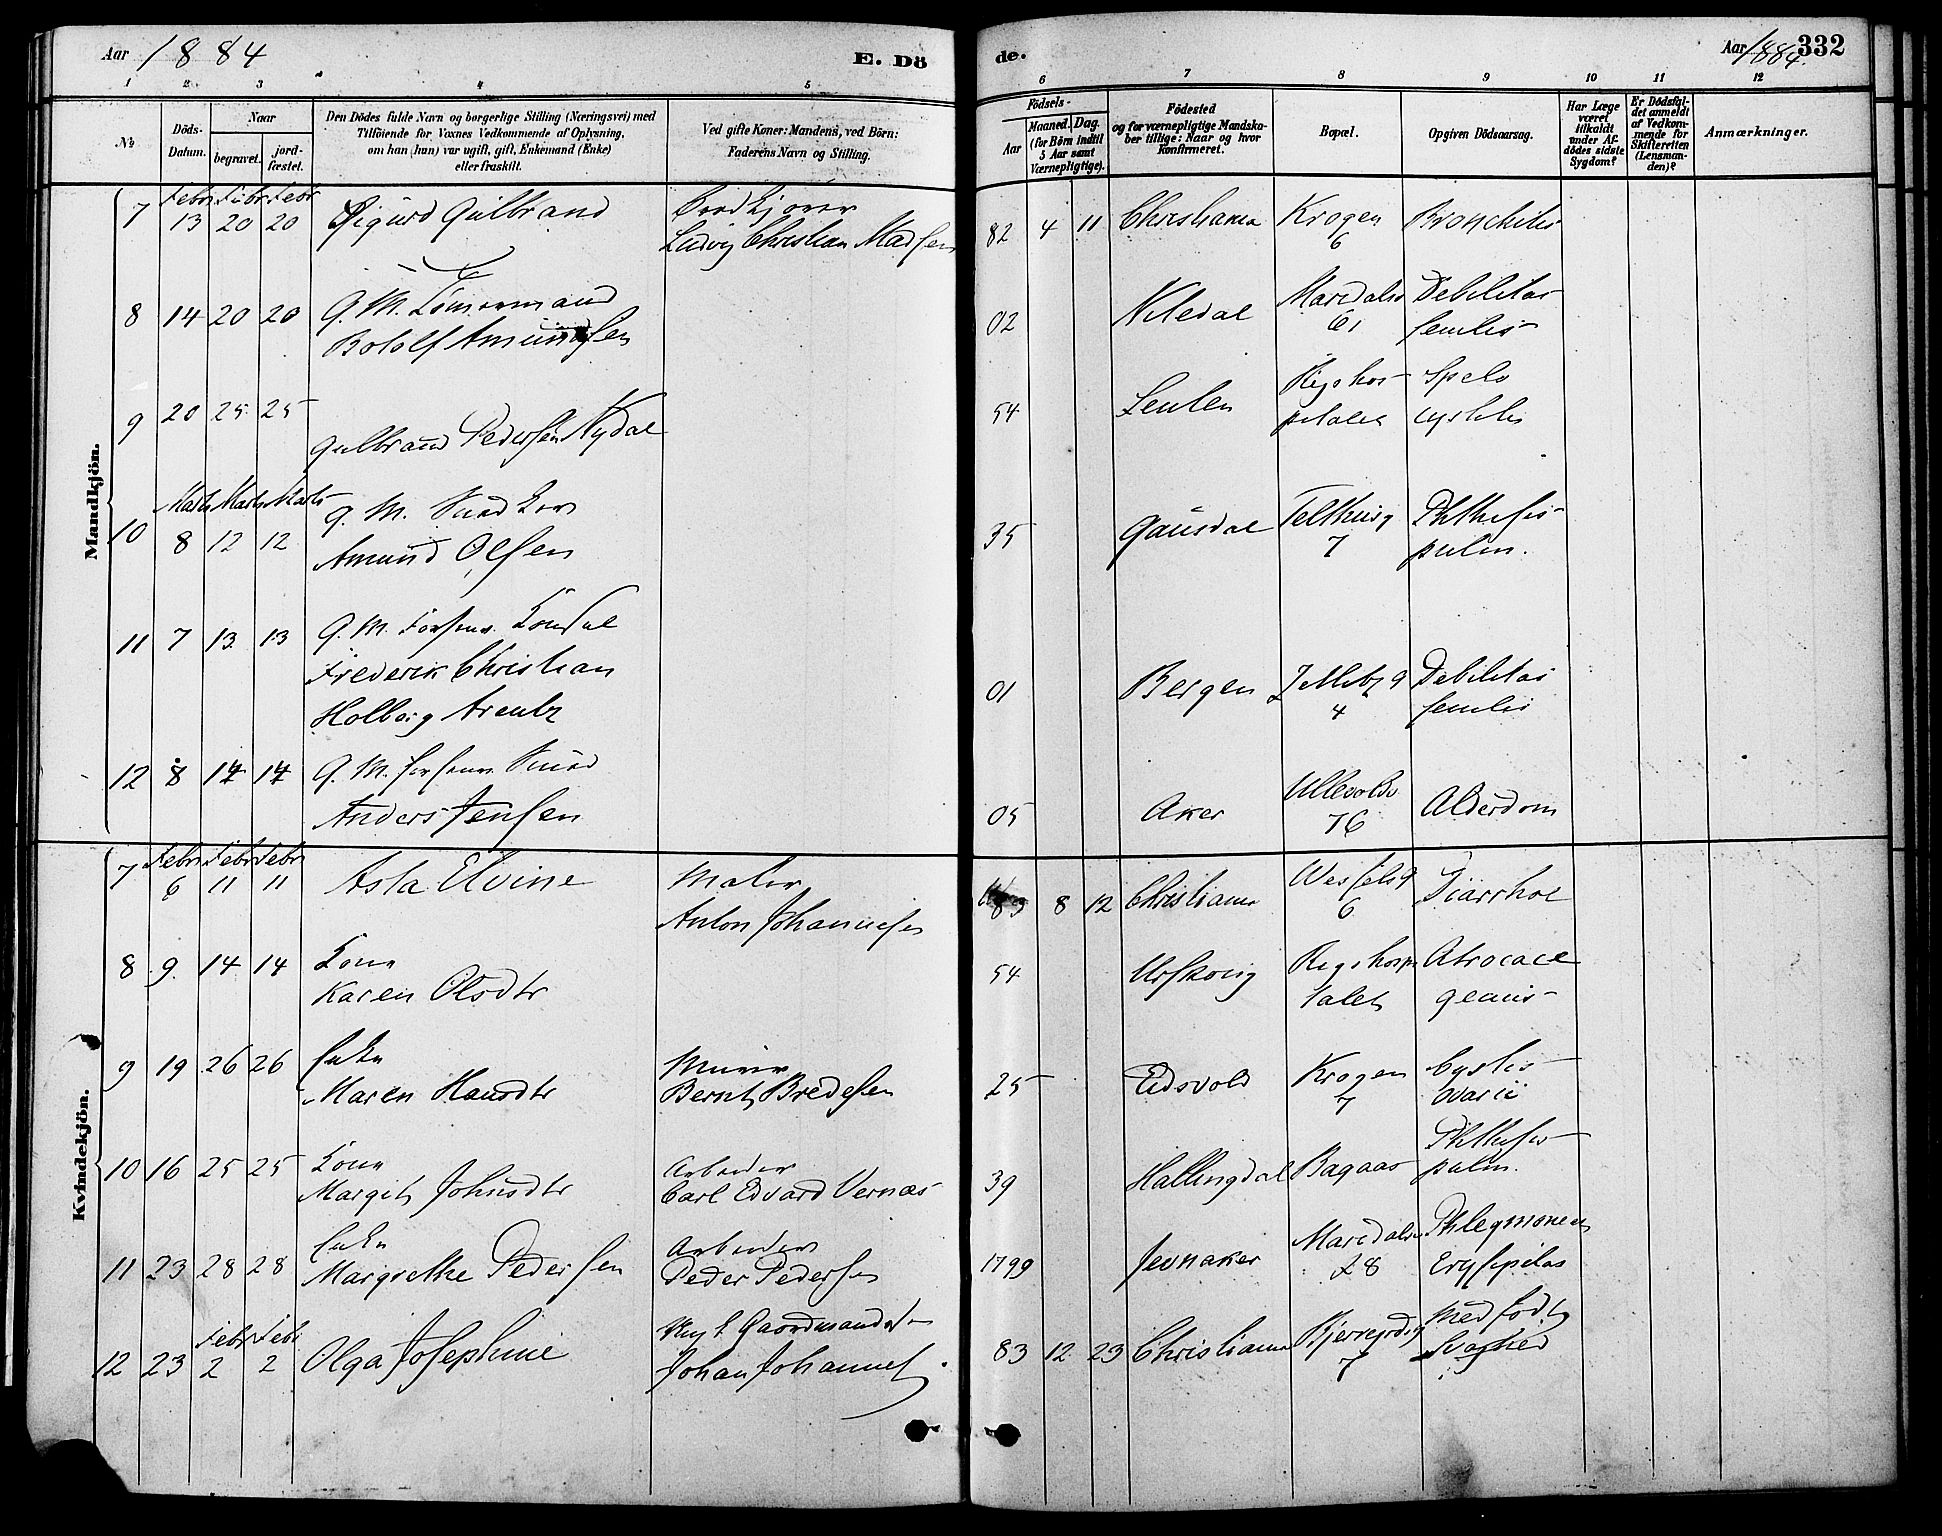 Aar 1884
E. Dö
de.
Aar 1884.
332
1 2 3 4 5
6 7 8 9 10 11 12
No
Döds-Datum.
Naar
begravet.
jord-fæstet.
Den Dödes fulde Navn og borgerlige Stilling (Næringsvei) med
Tilföiende for Voxnes Vedkommende af Oplysning,
om han (hun) var ugift, gift, Enkemand (Enke)
eller fraskilt.
Ved gifte Koner: Mandens, ved Börn:
Faderens Navn og Stilling.
Födsels-
Aar
Maaned. Dag.
(for Börn indtil
5 Aar samt
Værnepligtige).
Födested
og for værnepligtige Mandska-
ber tillige: Naar og hvor
konfirmeret.
Bopæl.
Opgiven Dödsaarsag.
Har Læge
været
tilkaldt
under Af-
dödes sidste
Sygdom?
Er Dödsfal-
det anmeldt
af Vedkom-
mende for
Skifteretten
(Lensman-
den)?
Anmærkninger.
Mandkjön.
Febr Febr Febr
7 13 20 20 Sigurd Gulbrand
Ludvig Christian Madsen
82 4 11 Christiania Krogen 6 Bronchitis
8 14 20 20 G. M. Tömmermand
Botolf Amundsen
02 Nitedal Maridalsv 61 Debilitas senilis
9 20 25 25 Gulbrand Pedersen Nydal
54 Leuten Rigshospitalet cystitis
Marts Marts Marts
10 8 12 12 G. M.
Amund Olsen
35 Gausdal Telthusg 7 Phthisis pulm.
11 7 13 13 G. M.
Frederik Christian
Holberg Arentz
01 Bergen 4 Debilitas senilis
12 8 14 14 G. M.
Anders Jensen
05 Aker Ullevoldv 76 Alderdom
Kvindekjön.
Febr Febr Febr
7 6 11 11 Asta Elvine
Maler
Anton Johannesen
83 8 12 Christiania Wesselsg 6 Diarrhoe
8 9 14 14 Kone
Karen Olsdtr
54 Urskoug Rigshospitalet
9 19 26 26 Enke
Maren Hansdtr
Murer
Bernt Bredesen
25 Eidsvold Krogen 7 Cystis ovarii
10 16 25 25 Kone
Margit Johnsdtr
Arbeider
Carl Edvard Vernæs
39 Hallingdal Bagaas Phthisis pulm.
11 23 28 28 Enke
Margrethe Pedersen
Arbeider
Peder Pedersen
1799 Jevnaker Maridalsv 28 Phlegmonen Erysipelas
Febr Febr
12 23 2 2 Olga Josephine
Johan Johannes
83 12 23 Christiania Bjerregdsg 7 Medfödt Svaghed